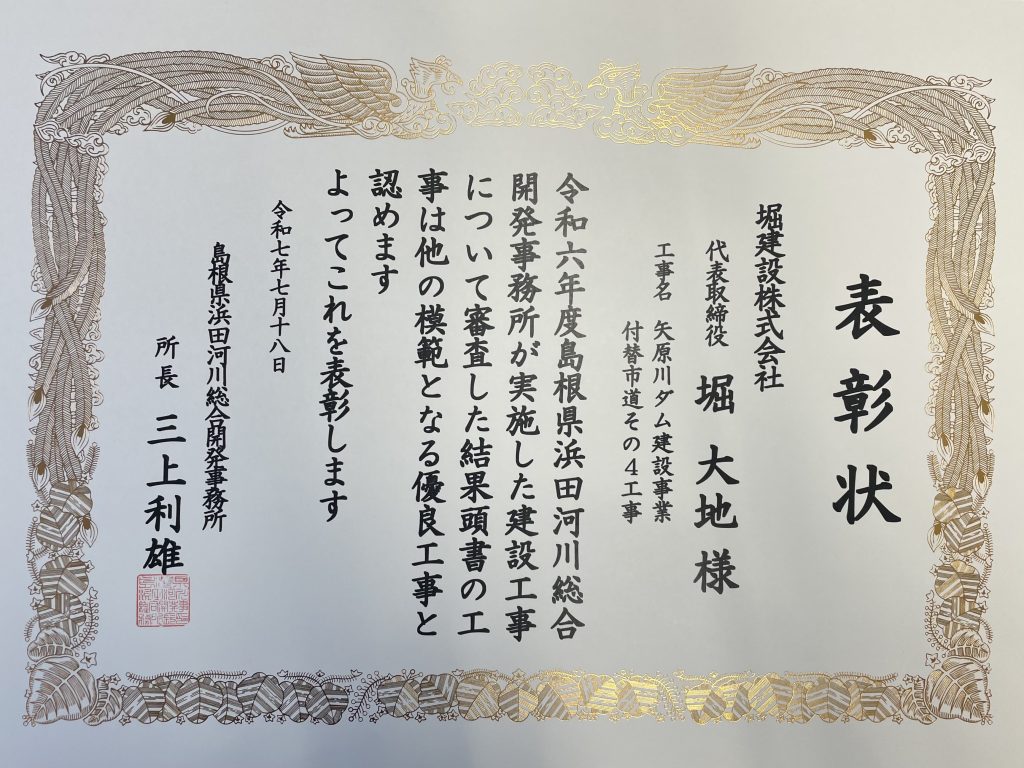 表彰状
堀建設株式会社
代表取締役 堀大地様
工事名 矢原川ダム建設事業
付替市道その4工事
令和六年度島根県浜田河川総合
開発事務所が実施した建設工事
について審査した結果頭書の工
事は他の模範となる優良工事と
認めます
よってこれを表彰します
令和七年七月十八日
島根県浜田河川総合開発事務所
所長 三上利雄